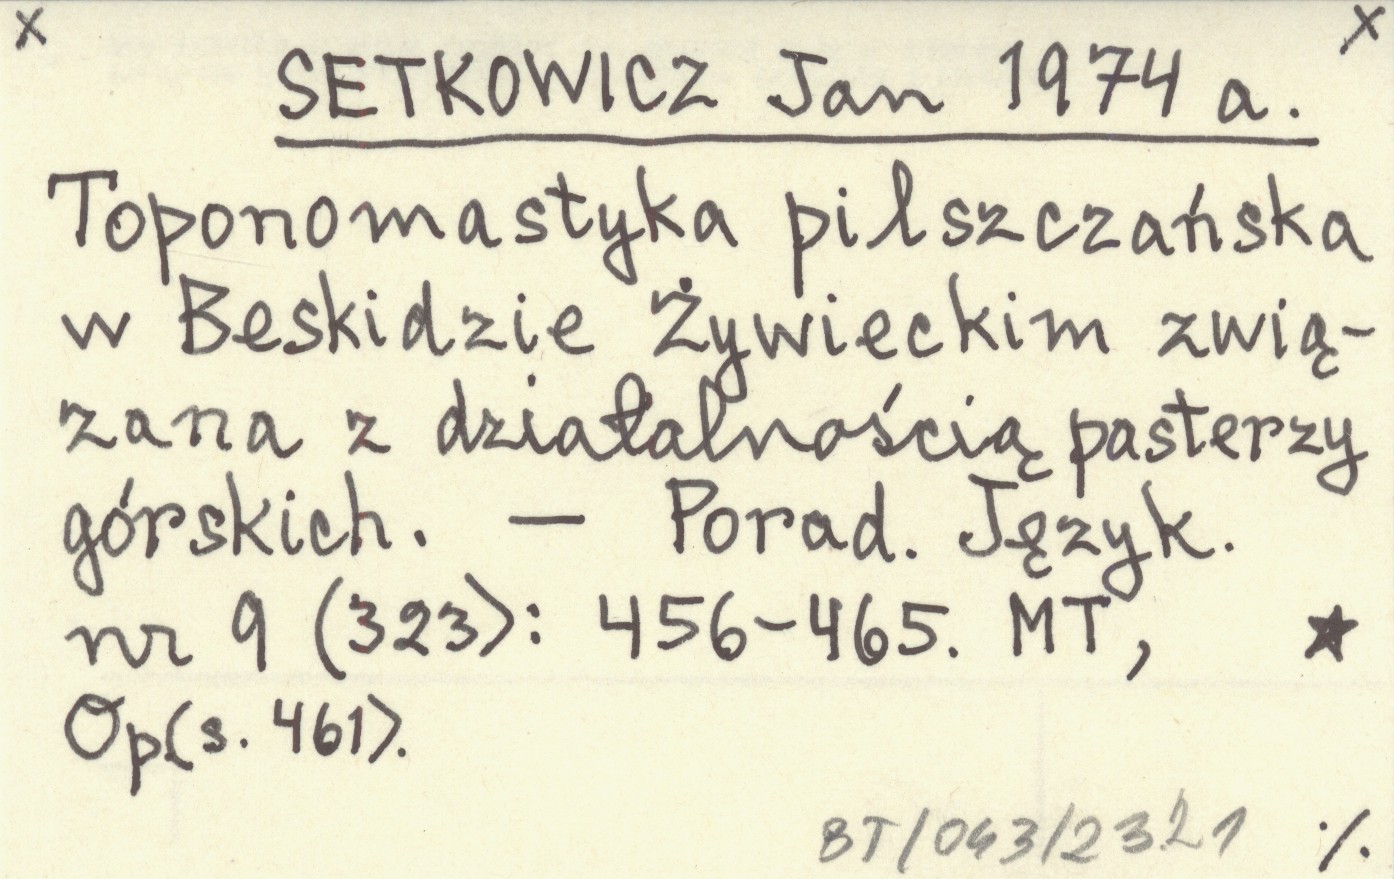 x x
SETKOWICZ Jan 1974 a.
Toponomastyka pilszczańska
w Beskidzie Żywieckim zwią-
zana z działalnością pasterzy
górskich. — Porad. Język.
nr 9 (323): 456-465. MT, ★
Op(s. 461).
BT/043/2321 ·/.